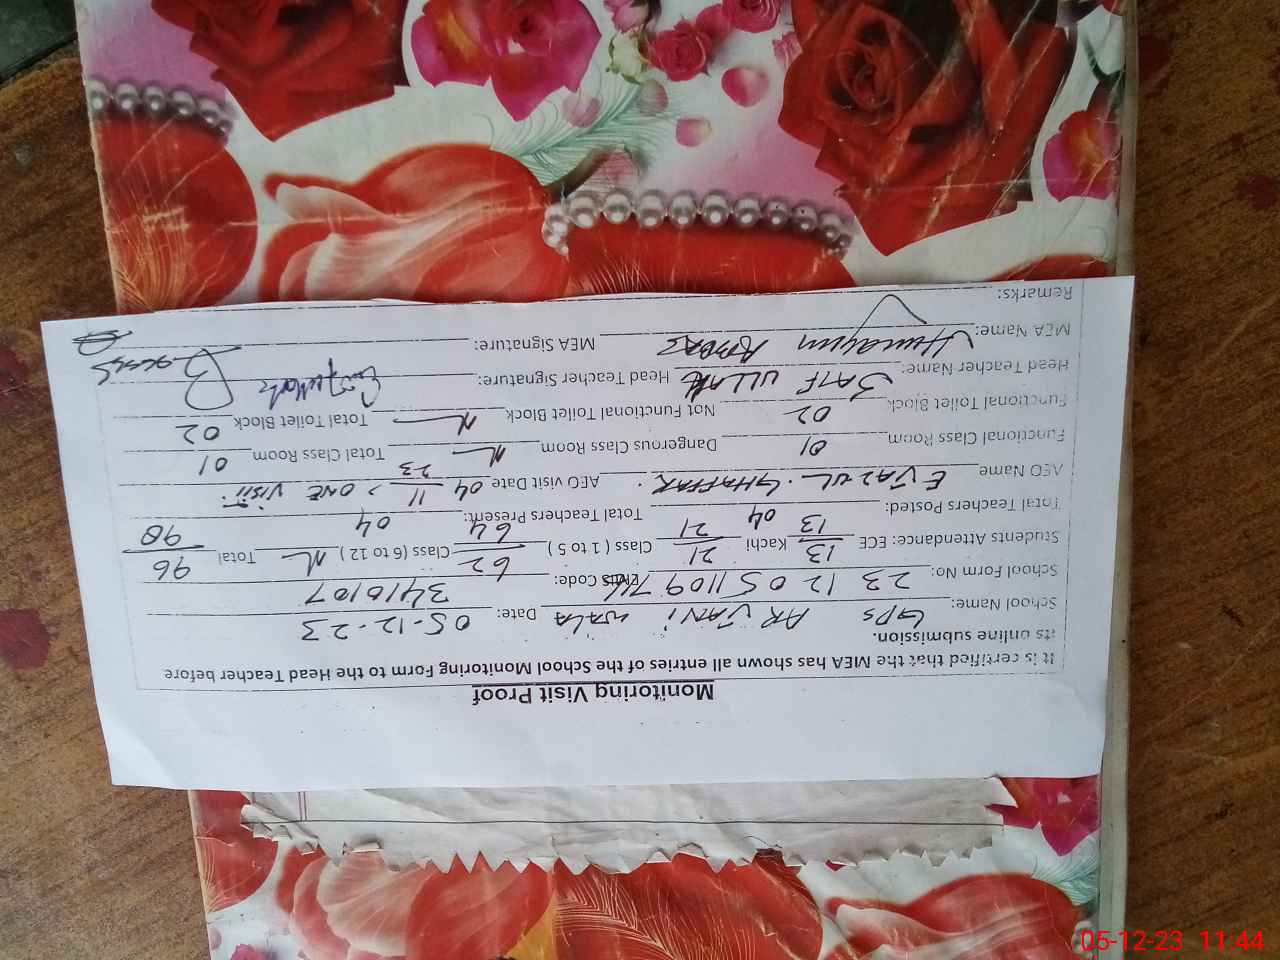 Monitoring Visit Proof
It is certified that the MEA has shown all entries of the School Monitoring Form to the Head Teacher before
its online submission.
School Name: GPS ARJANI WALA Date: 05-12-23
School Form No: 23 12 051109 714 EMIS Code: 3410107
Students Attendance: ECE 13/13 Kachi 21/21 Class ( 1 to 5 ) 62/64 Class (6 to 12 ) N Total 96/98
Total Teachers Posted: 04 Total Teachers Present: 04
AEO Name EJAZ UL. GHAFFAR. AEO visit Date 04 11 23 > ONE VISIT.
Functional Class Room 01 Dangerous Class Room N Total Class Room 01
Functional Toilet Block 02 Not Functional Toilet Block N Total Toilet Block 02
Head Teacher Name: SAIF ULLAH Head Teacher Signature:
MEA Name: Humayun MEA Signature:
Remarks:
05-12-23 11:44